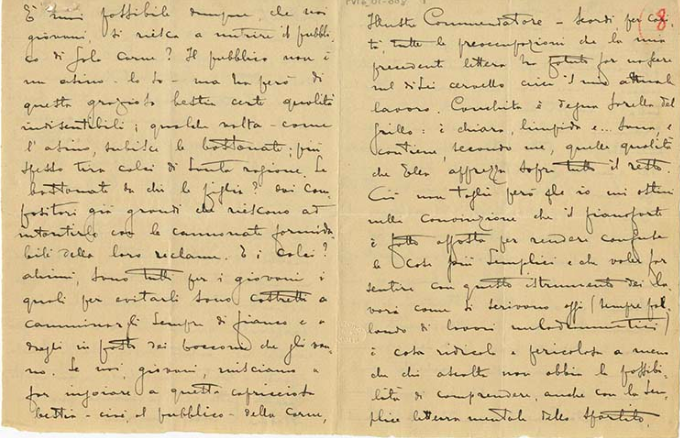 È mai possibile dunque, che noi
giovani, si riesca a nutrire il pubbli-
co di sola carne? Il pubblico non è
un asino - lo so - ma ha però di
questa graziosa bestia certe qualità
indiscutibili; qualche volta - come
l'asino, subisce le bastonate; più
spesso tira calci di santa ragione. Le
bastonate da chi le piglia? Dai com-
positori già grandi che riescono ad
intontirlo con le cannonate formida-
bili della loro reclame. E i calci?
ahimi, sono tutti per i giovani i
quali per evitarli sono costretti a
camminargli sempre di fianco e a
dargli in pasto dei bocconi che gli van-
no. Se noi, giovani, riusciamo a
far ingoiare a questa capricciosa
bestia - cioè, al pubblico - della carne,
8
Illustre Commendatore - Scordi, per cari-
tà, tutte le preoccupazioni che la mia
precedent lettera ha potuto far nascere
nel di Lei cervello circa il mio attual
lavoro. Conchita è degna sorella del
Grillo: è chiaro, limpido e... sano, e
contiene, secondo me, quelle qualità
che Ella apprezza sopra tutto il resto.
Ciò non toglie però che io mi ostini
nella convinzione che il pianoforte
è fatto apposta per rendere confuse
le cose più semplici e che voler far
sentire con questo istrumento dei la-
vori come si scrivono oggi (sempre par-
lando di lavori melodrammatici)
è cosa ridicola e pericolosa a meno
che chi ascolta non abbia la possibi-
lità di comprendere, anche con la sem-
plice lettura mentale dello spartito,